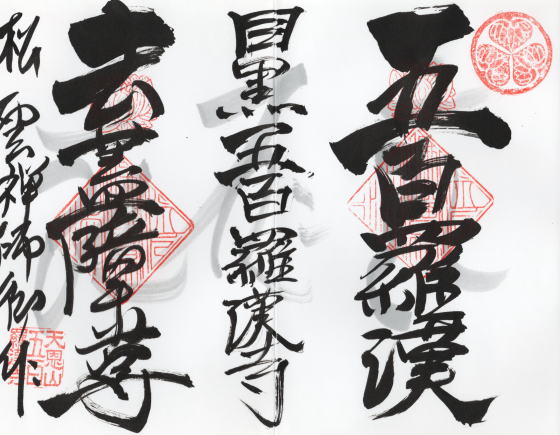 五百羅漢
目黒五百羅漢寺
尊
松雲禅師御作
天恩山
五百
羅漢寺